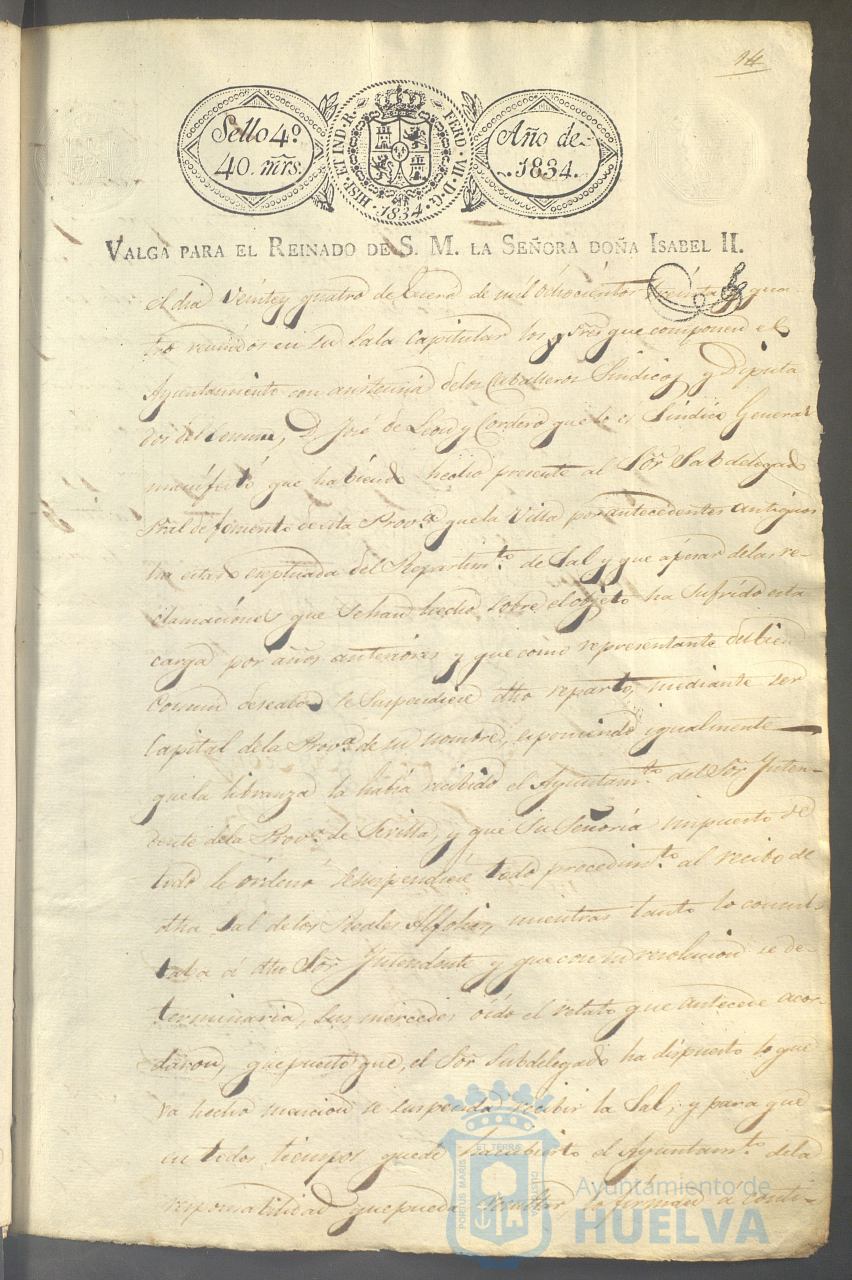 14
Sello 4º
40. mrs.
HISP. ET IND. R. FERD. VII. D. G.
1834
Año de
1834.
VALGA PARA EL REINADO DE S. M. LA SEÑORA DOÑA ISABEL II.
el dia Veintey quatro de Enero de mil ochocientos treinta y qua-
tro reunidos en su Sala Capitular los Sres que componen el
Ayuntamiento con asistencia delos Caballeros Sindicos y Diputa
dos del Comun, D. José de Leon y Cordero que lo es Sindico General
manifestó que habiendo hecho presente al Sor Subdelegado
Pral de fomento de esta Provª que la Villa por antecedentes antiguos
ha estado exeptuada del Repartimto de Sal y que apesar delas re-
clamaciones que sehan hecho sobre el objeto ha sufrido esta
carga por años anteriores y que como representante del bien
Comun deseaba se suspendiese dho reparto, mediante ser
Capital dela Provª de su nombre, esponiendo igualmente
que la libranza la habia recibido el Ayuntamto del Sor Inten-
dente dela Provª de Sevilla, y que Su Señoria impuesto de
todo le ordenó Sesuspendiese todo procedimto al recibo de
dha Sal delos Reales Alfolies, mientras tanto lo consul-
taba á dho Sor Yntendente y que con su resolucion se de-
terminaria, Sus mercedes oido el relato que antecede acor-
daron, que puesto que, el Sor Subdelegado ha dispuesto lo que
va hecho mencion se suspenda recibir la Sal; y para que
en todos tiempos quede hacubierto el Ayuntamto dela
responsabilidad que pueda resultar lo firman á conti-
PORTUS MARIS ET TERRE CUSTODIA
Ayuntamiento de
HUELVA